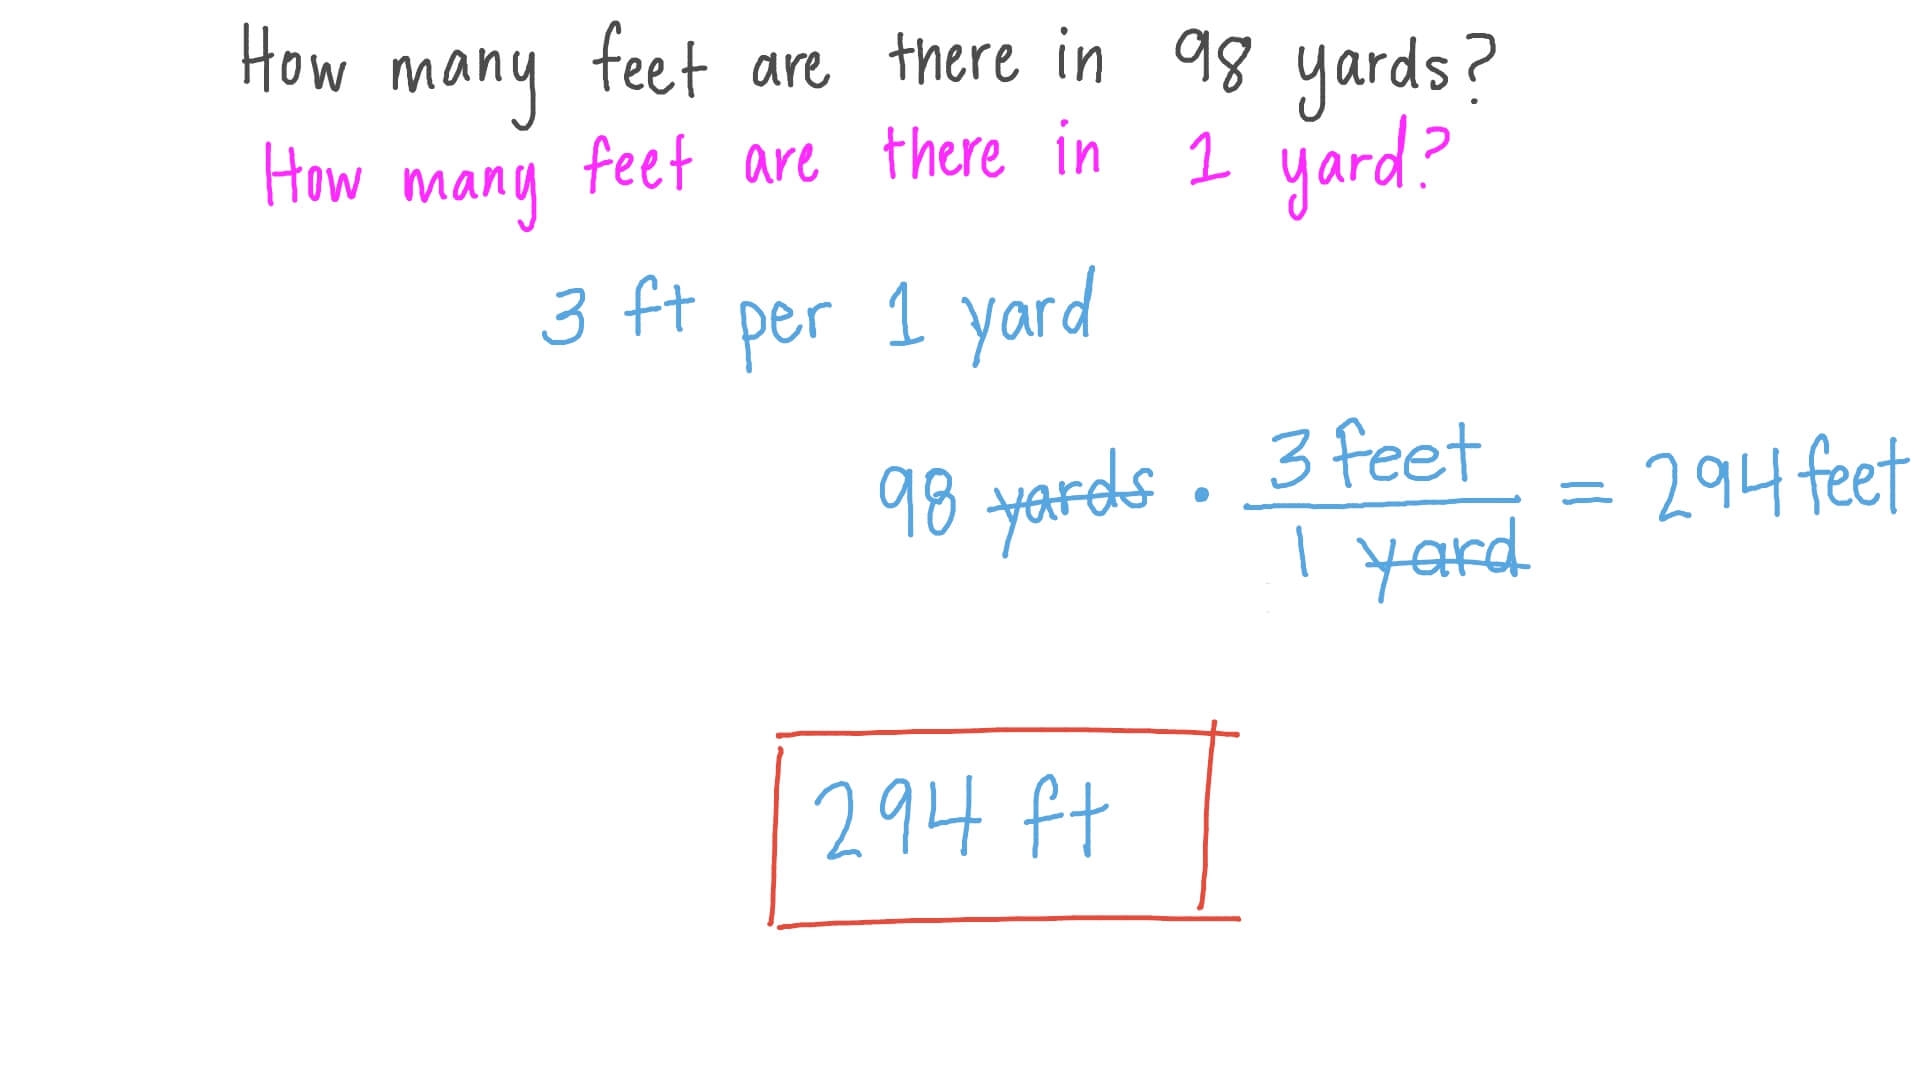 How many feet are there in 98 yards?
How many feet are there in 1 yard?
3 ft per 1 yard
98 yards · 3 feet / 1 yard = 294 feet
294 ft